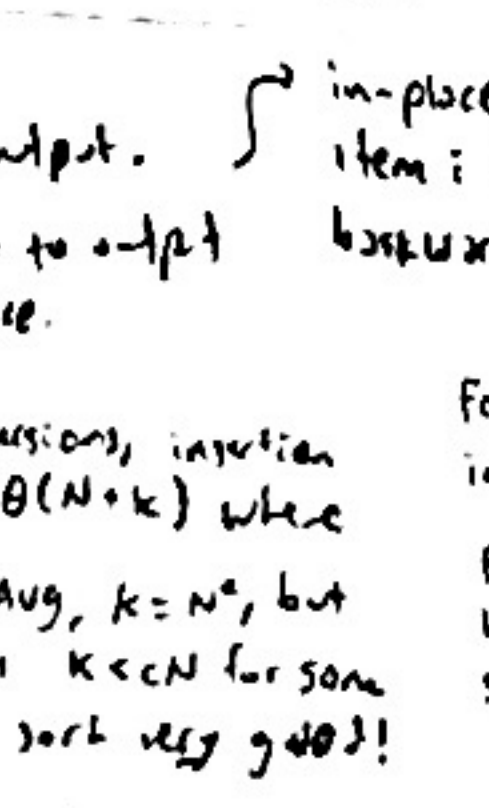 output.
to output
ce.
in-place
item i
backwar
ersions, insertion
Θ(N+k) where
Avg, k = N², but
k < cN for some
sort very good!
Fo